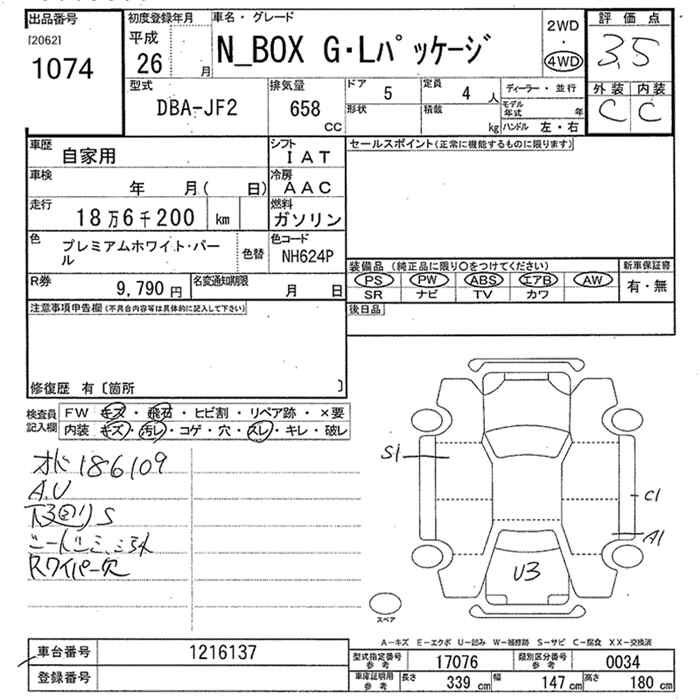 出品番号
[2062]
1074
初度登録年月
平成
26 月
車名・グレード
N_BOX G・Lパッケージ
2WD
・
4WD
評価点
3.5
型式
DBA-JF2
排気量
658 CC
ドア 5
定員 4 人
形状
積載 kg
ディーラー・並行
モデル年式 年
ハンドル 左・右
外装 内装
C C
車歴 自家用
シフト IAT
車検 年 月( 日)
冷房 AAC
走行 18万6千200 km
燃料 ガソリン
色 プレミアムホワイト・パール
色替
色コード NH624P
R券 9,790 円
名変通知期限 月 日
セールスポイント(正常に機能するものに限ります)
装備品 (純正品に限り○をつけてください)
新車保証書
PS PW ABS エアB AW
SR ナビ TV カワ
有・無
後日品
注意事項申告欄(不具合内容等は具体的に記入して下さい)
修復歴 有〔箇所 〕
検査員記入欄
FW キズ・飛石・ヒビ割・リペア跡・×要
内装 キズ・汚レ・コゲ・穴・スレ・キレ・破レ
186109
A.U
下回りS
Rワイパー欠
S1
C1
A1
U3
スペア
A-キズ E-エクボ U-凹み W-補修跡 S-サビ C-腐食 XX-交換済
車台番号 1216137
登録番号
型式指定番号 参考 17076
類別区分番号 参考 0034
車庫証明用 参考 長さ 339 cm 幅 147 cm 高さ 180 cm